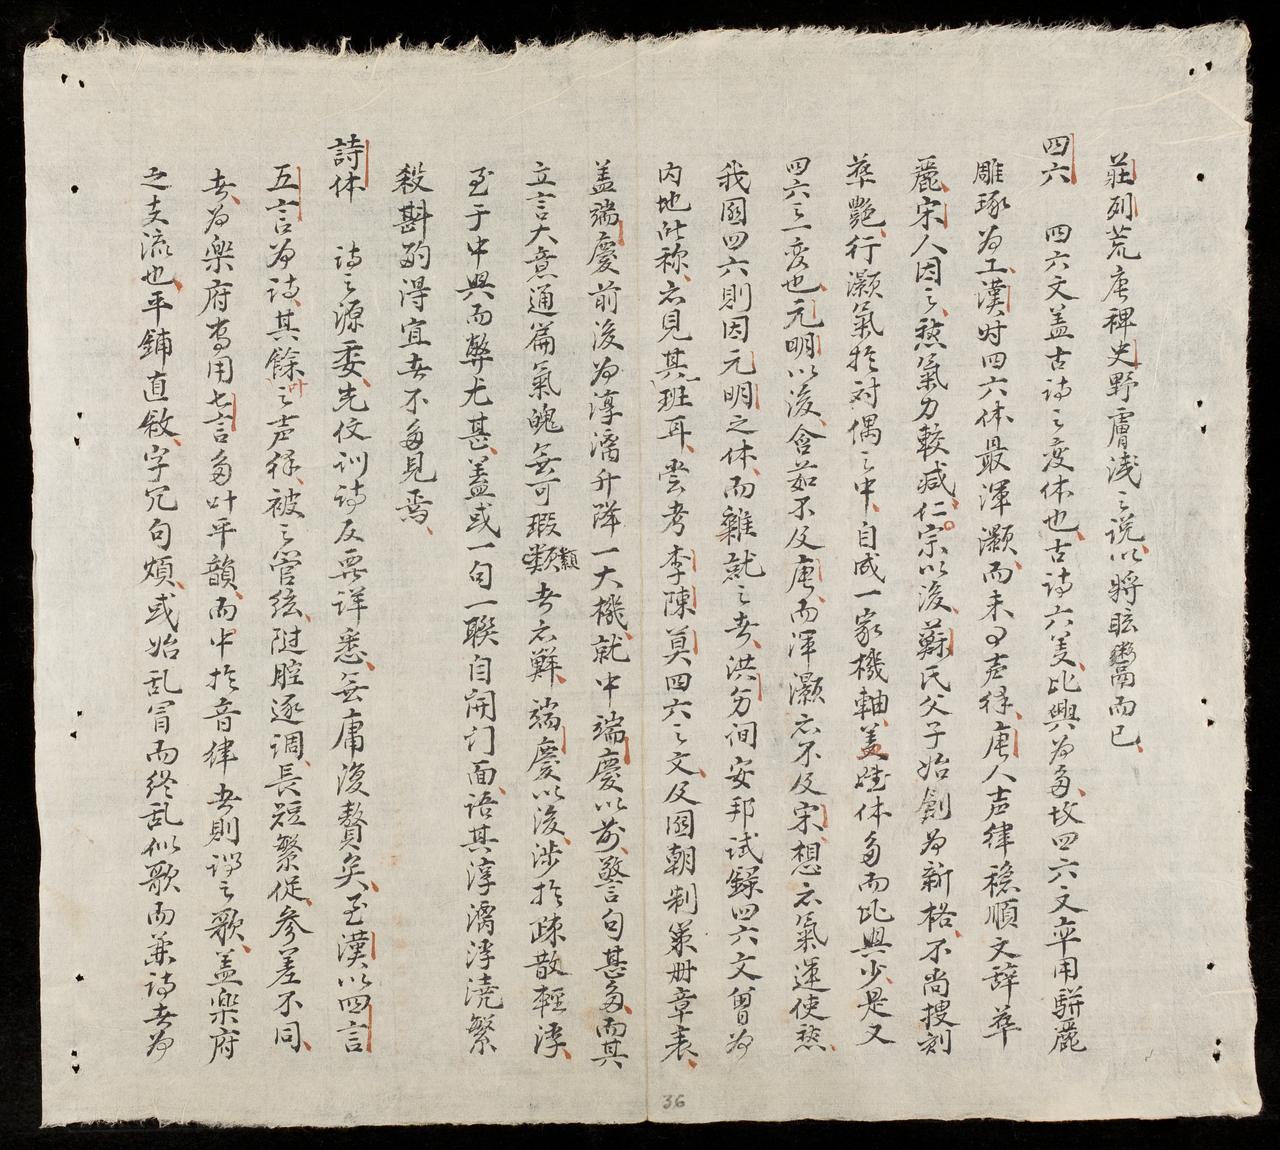 莊列荒唐稗史野膚浅々说以將眩鬻而已
四六　四六文盖古诗之变体也古诗六美比興为多故四六文率用駢麗
雕琢为工漢时四六体最渾灝而未 声律唐人声律穏順文辞華
麗宋人因之然氣力較减仁宗以後蘇氏父子始創为新格不尚搜刻
華艷行灝氣扵对偶之中自成一家機軸盖 体多而比興少是又
四六之一变也元明以後含茹不及唐而渾灝亦不及宋想亦氣運使然
我國四六則因元明之体而雜就之者洪 间安邦试錄四六文曾为
内地所称亦見其一班耳 考李陳莫四六之文及國朝制策册章表
盖端慶前後为淳漓升降一大機就中端慶以前警句甚多而其
立言大意通篇氣魄無可瑕纇者亦鮮端慶以後涉扵疎散輕浮
至于中興而弊尤甚盖或一句一聯自開门面语其淳漓浮澆繁
殺斟酌得宜者不多見焉
詩体　诗之源委先 训诗反 详悉無庸復贅矣至漢以四言
五言为诗其餘 之声律被之管絃随腔逐调長短繁促参差不同
者为樂府专用七言多叶平韻而中扵音律者則謂之歌盖樂府
之支流也平鋪直敘字冗句煩或始乱冒而終乱似歌而兼诗者为
36